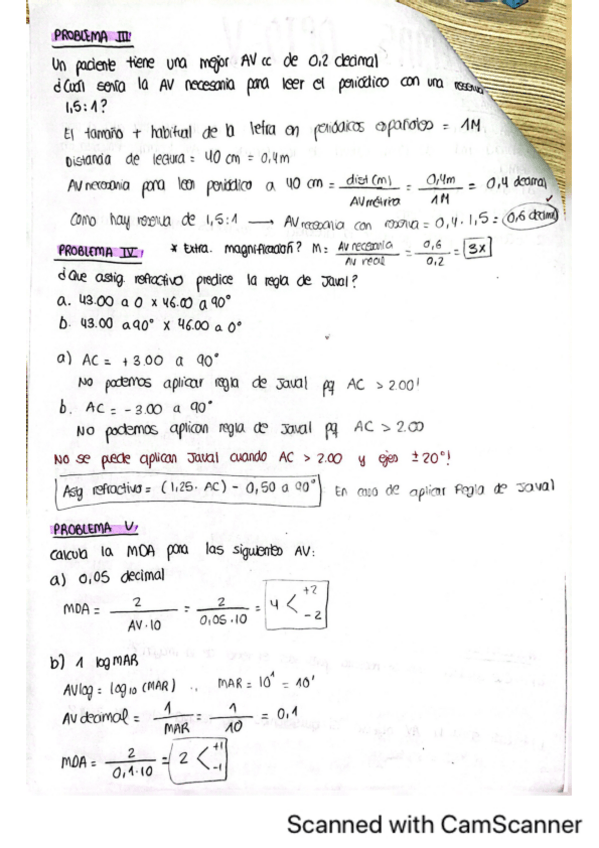 PROBLEMA III:
Un paciente tiene una mejor AV cc de 0,2 decimal
¿Cuál sería la AV necesaria para leer el periódico con una reserva
1,5:1?
El tamaño + habitual de la letra en periódicos españoles = 1M
Distancia de lectura = 40 cm = 0,4m
AV necesaria para leer periódico a 40 cm = dist (m) / AV métrica = 0,4m / 1M = 0,4 decimal
Como hay reserva de 1,5:1 → AV necesaria con reserva = 0,4 · 1,5 = 0,6 decimal
PROBLEMA IV: * Extra. magnificación? M = AV necesaria / AV real = 0,6 / 0,2 = 3x
¿Que astig. refractivo predice la regla de Javal?
a. 43.00 a 0 x 46.00 a 90°
b. 43.00 a 90° x 46.00 a 0°
a) AC = +3.00 a 90°
No podemos aplicar regla de Javal pq AC > 2.00!
b. AC = -3.00 a 90°
No podemos aplicar regla de Javal pq AC > 2.00
No se puede aplicar Javal cuando AC > 2.00 y ejes ± 20°!
Astg refractivo = (1,25 · AC) - 0,50 a 90° En caso de aplicar Regla de Javal
PROBLEMA V:
Calcula la MDA para las siguientes AV:
a) 0,05 decimal
MDA = 2 / AV·10 = 2 / 0,05·10 = 4 < +2 -2
b) 1 logMAR
AVlog = log10 (MAR) ∴ MAR = 10^1 = 10'
AV decimal = 1 / MAR = 1 / 10 = 0,1
MDA = 2 / 0,1·10 = 2 < +1 -1
Scanned with CamScanner